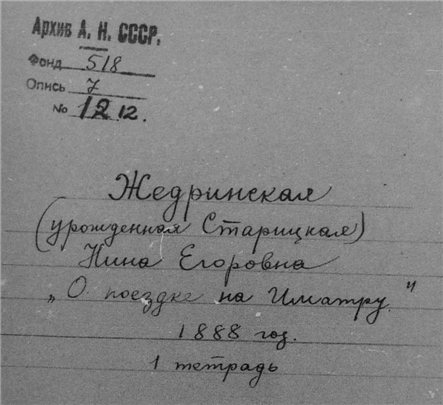 Архив А. Н. СССР,
Фонд 518
Опись 7
№ 12 12.
Жедринская
(урожденная Старицкая)
Нина Егоровна
„О поездке на Иматру."
1888 год.
1 тетрадь